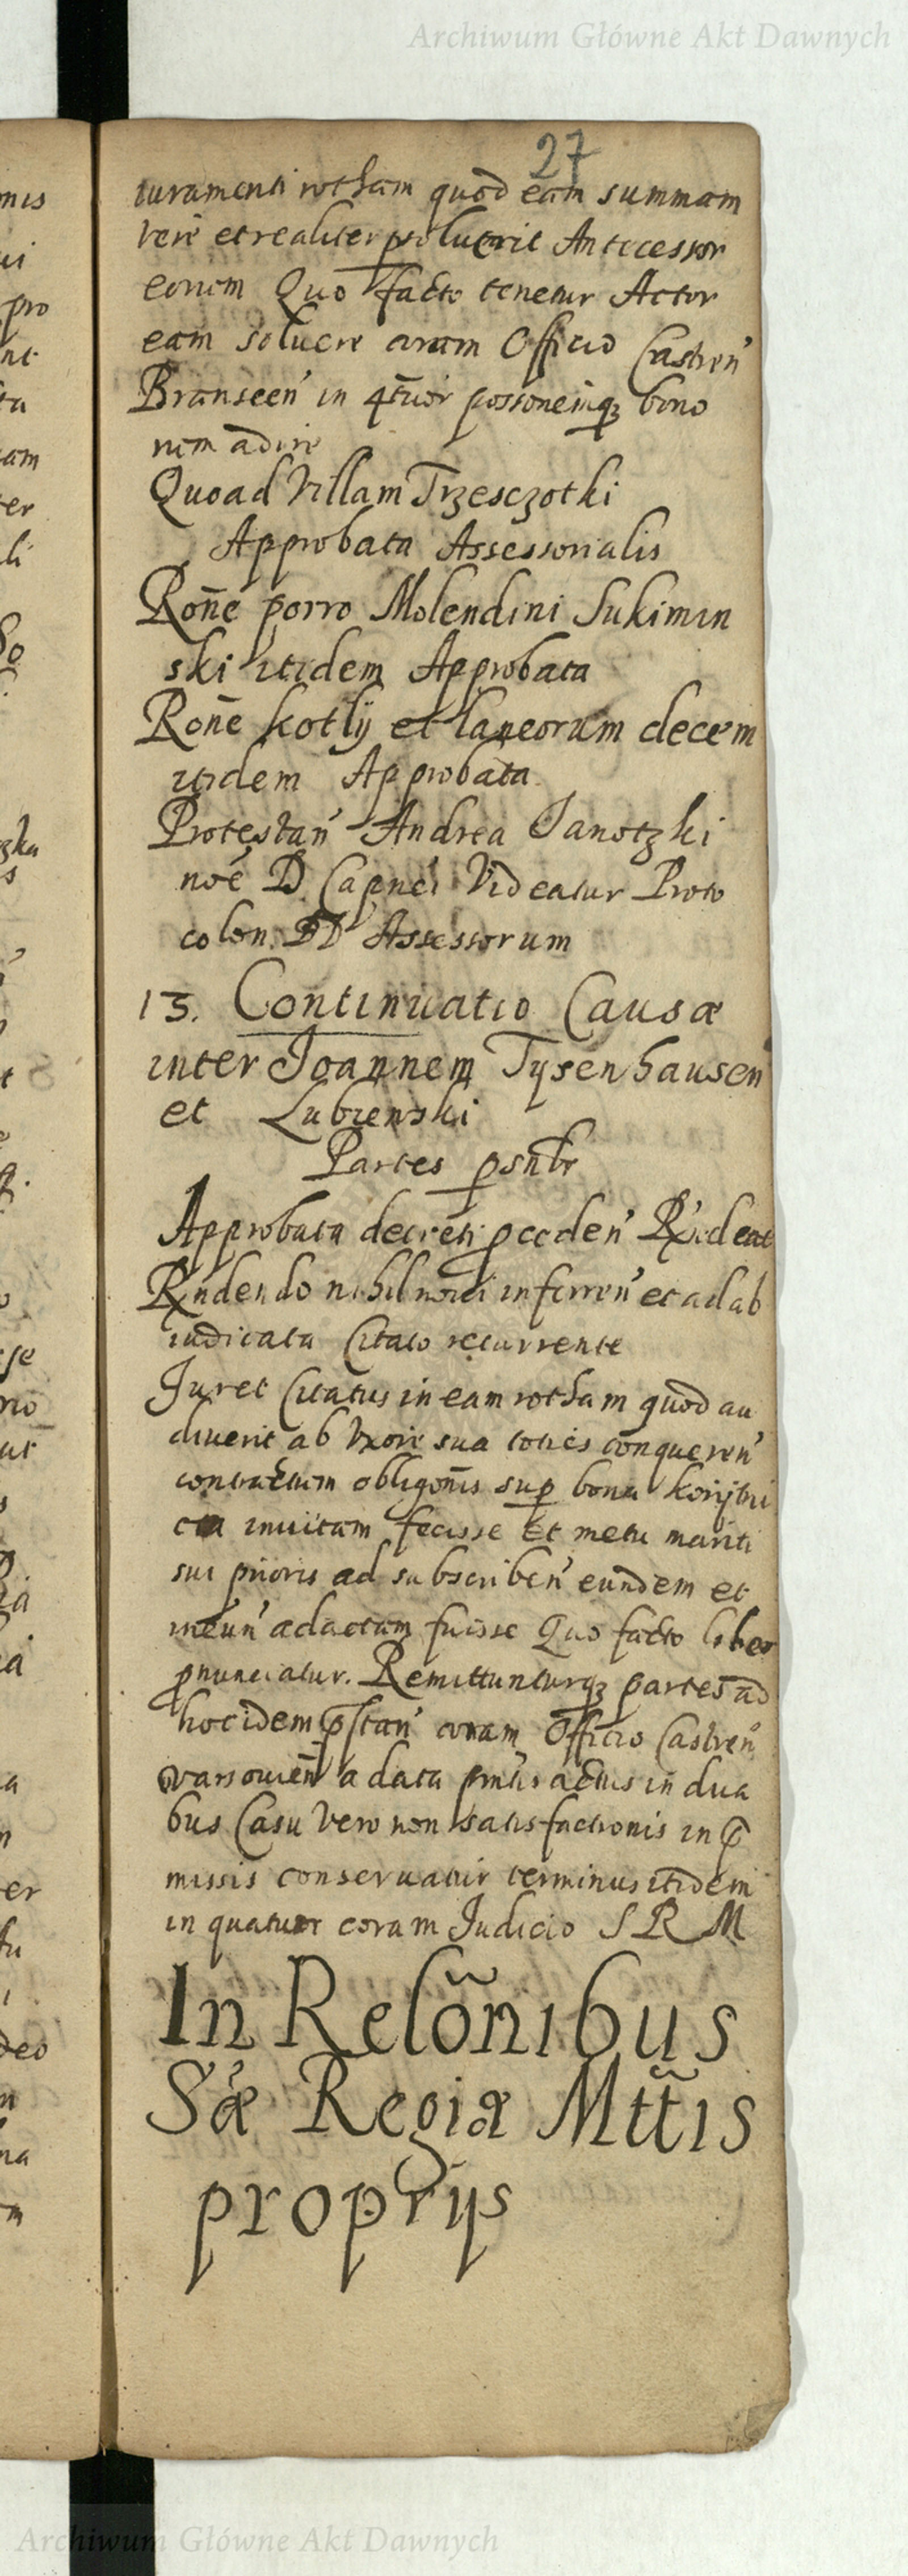 Archiwum Główne Akt Dawnych
27
iuramenti rotham quod eam summam
vere et realiter psoluerit Antecessor
eorum Quo facto tenetur Actor
eam soluere coram Officio Castren'
Branscen' in 4tuor possoneinq bono
rum adire
Quoad Villam Trzesczotki
Approbata Assessorialis
Rone porro Molendini Sukimin
ski itidem Approbata
Rone kotly et laneorum decem
itidem Approbata
Protestan' Andrea Janotzki
noe D. Capnei Videatur Proto
colon. DD Assessorum
13. Continuatio Causæ
inter Joannem Tysenhausen
et Lubienski
Partes psntbr
Approbata decreti pceden'
Rndendo nihil noui inferren' et ad ab
iudicata Citato recurrente
Juret Citatus in eam rotham quod au
diuerit ab Vxore sua toties conqueren'
contractum obligonis sup bona
inuitam fecisse et metu mariti
sui prioris ad subscriben' eundem et
ineun' adactam fuisse Quo facto liber
pnunciatur. Remittunturq partes ad
hoc idem pstan' coram Officio Castren'
varsouien' a data pntis actus in dua
bus Casu vero non satisfactionis in p
missis conseruatur terminus itidem
in quatuor coram Judicio S R M
In Relõnibus
S'æ Regiæ Mttis
proprijs
Archiwum Główne Akt Dawnych